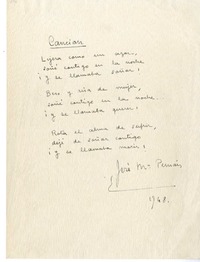 Canción
Ligera como un
soñé contigo en la noche,
¡y se llamaba soñar!
Beso y
soñé contigo en la noche
¡y se llamaba querer!
Rota el alma de sufrir,
dejé de soñar contigo
¡y se llamaba morir!
José Mª Pemán
1968.